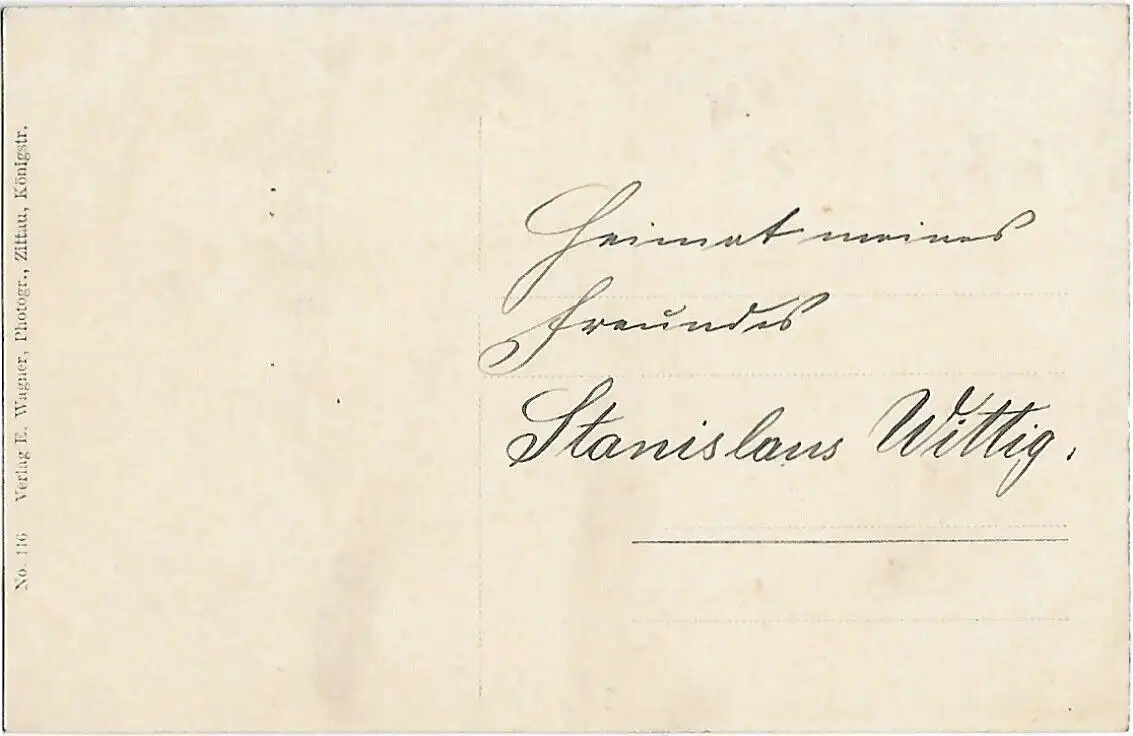 No. 116 Verlag E. Wagner, Photogr., Zittau, Königstr.
Heimat meines
Freundes
Stanislaus Wittig.